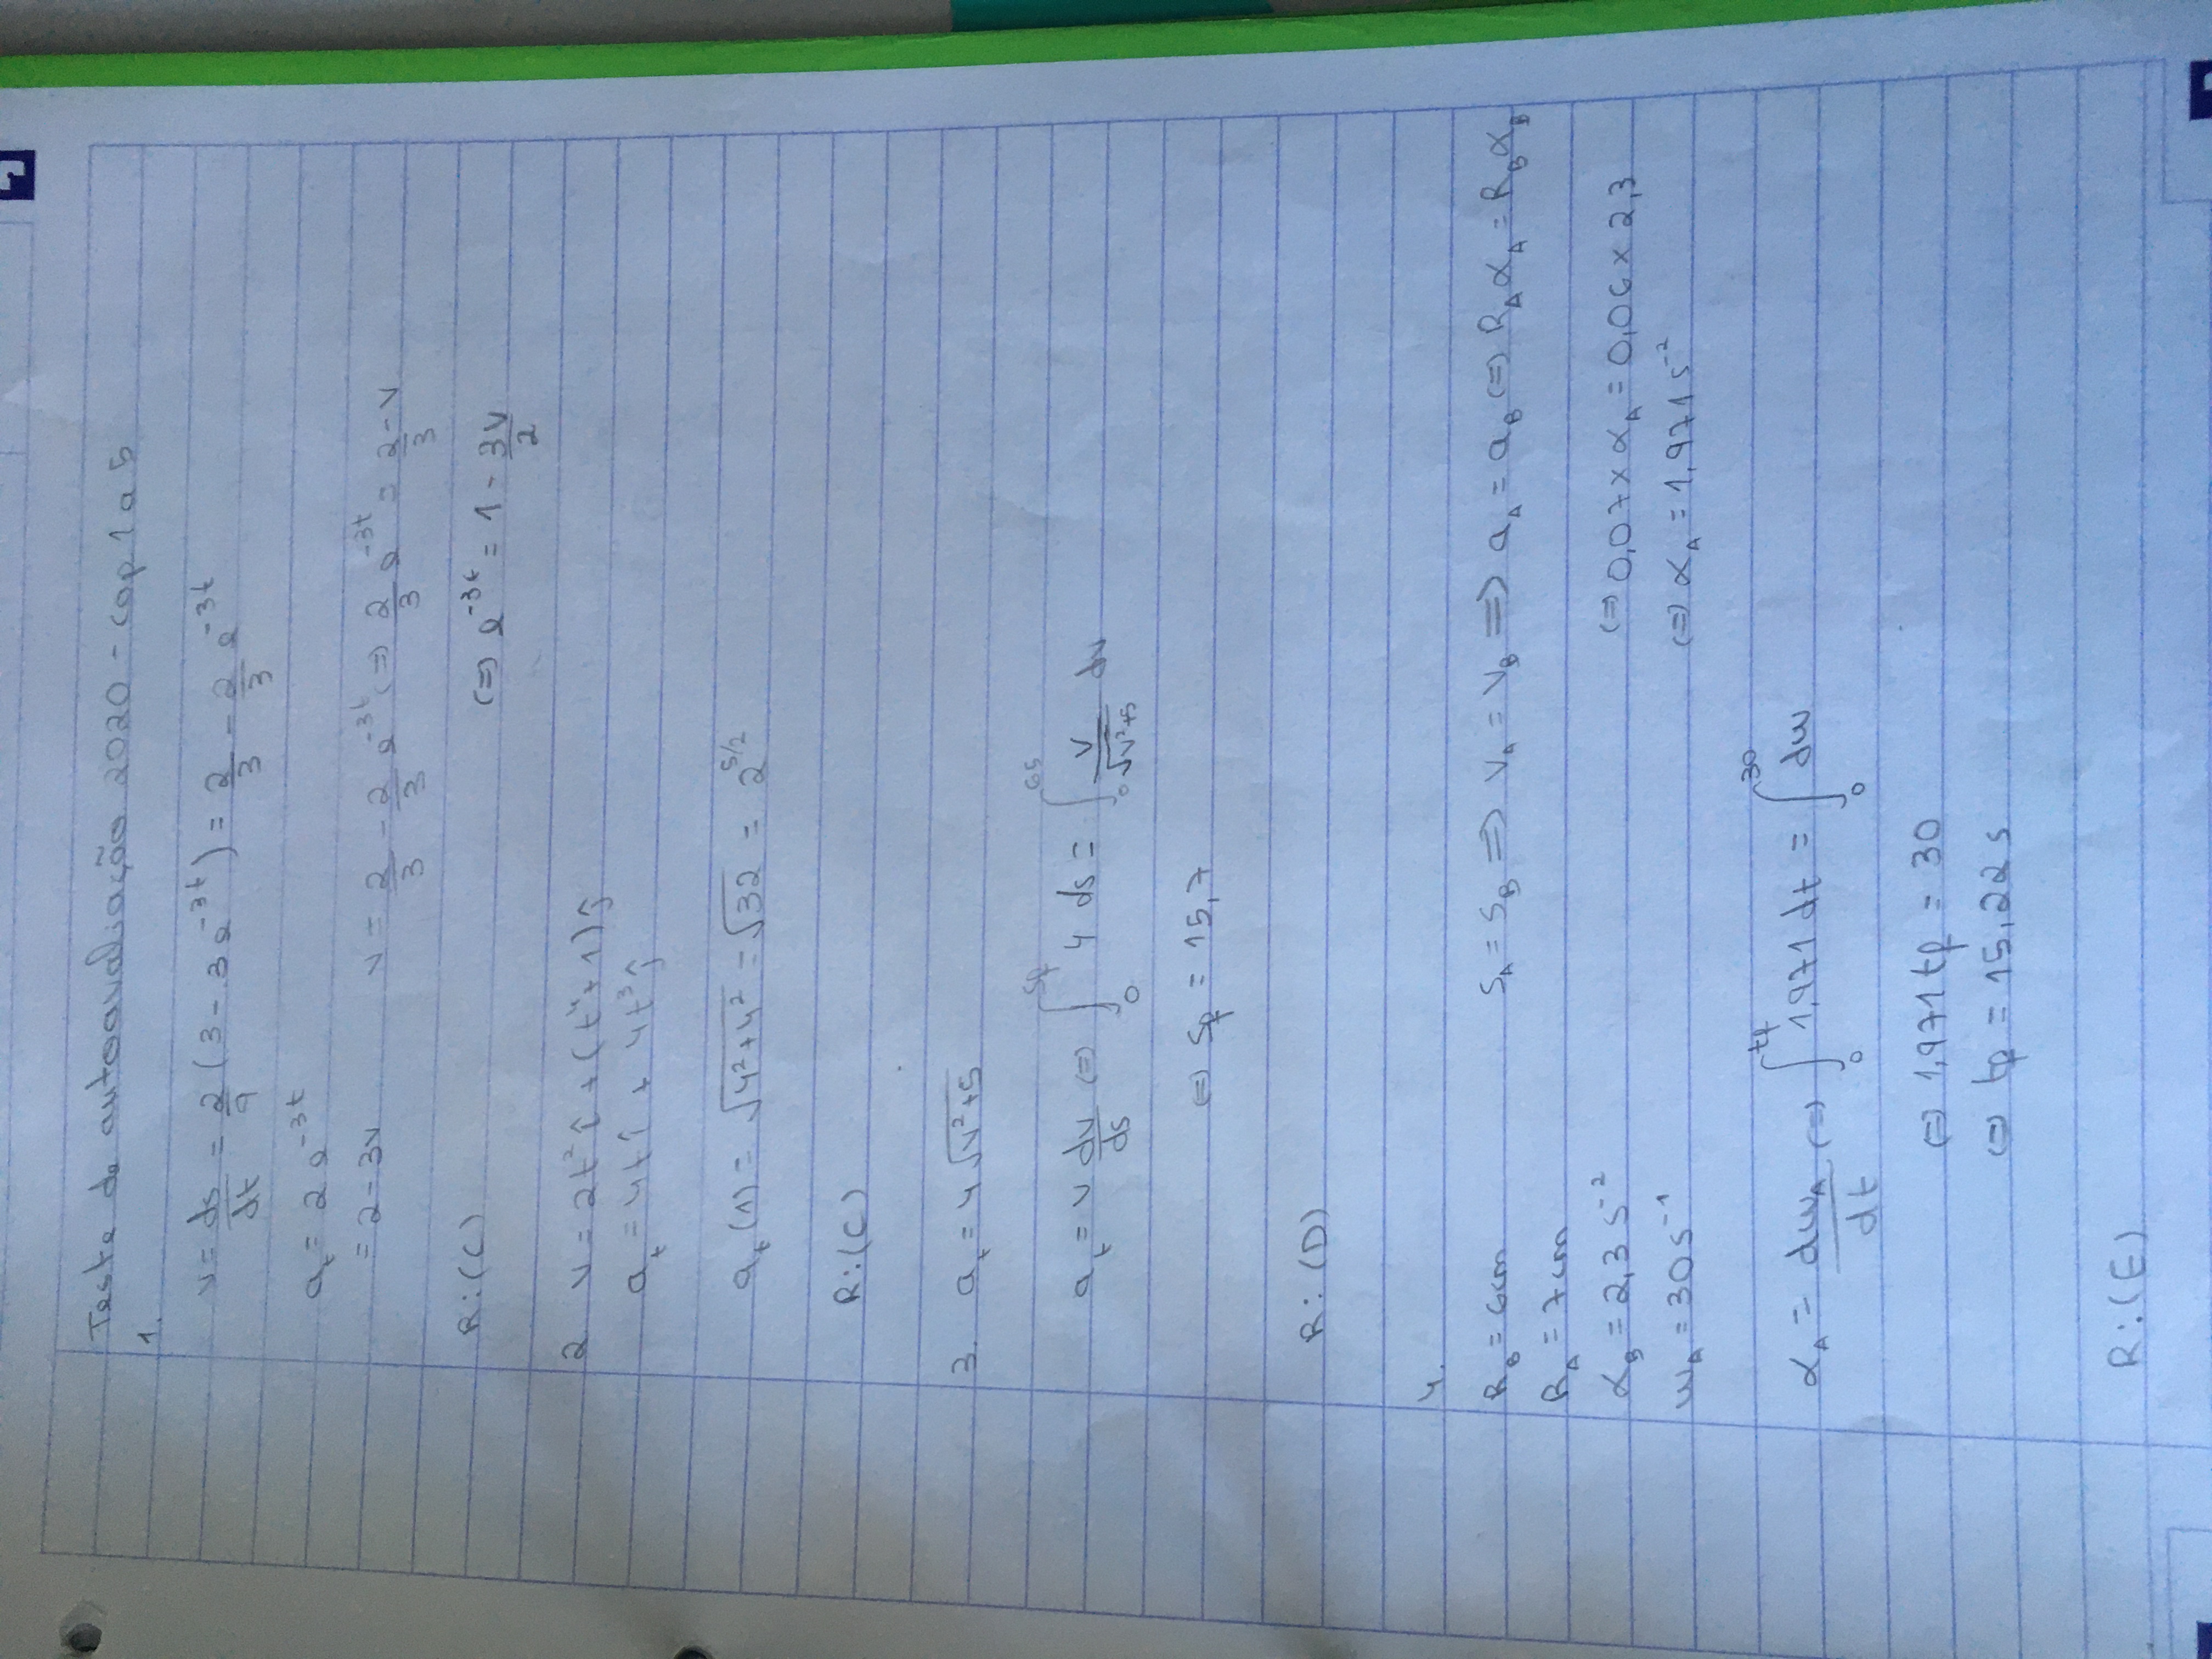 Teste de autoavaliação 2020 - cap 1 a 5
1.
v = ds/dt = 2/9 (3 - 3e^{-3t}) = 2/3 - 2/3 e^{-3t}
a_t = 2e^{-3t}
= 2 - 3v v = 2/3 - 2/3 e^{-3t} (=) 2/3 e^{-3t} = 2/3 - v
R:(C) (=) e^{-3t} = 1 - 3v/2
2 v = 2t² î + (t⁴ + 1) ĵ
a_t = 4t î + 4t³ ĵ
a_t (1) = √(4² + 4²) = √32 = 2^{5/2}
R:(C)
3. a_t = 4 √(v² + 5)
a_t = v dv/ds (=) ∫_0^{sf} 4 ds = ∫_0^{65} v/√(v² + 5) dv
(=) sf = 15,7
R: (D)
4.
R_B = 6cm S_A = S_B => V_A = V_B => a_A = a_B (=) R_A α_A = R_B α_B
R_A = 7cm
α_B = 2,3 s⁻² (=) 0,07 × α_A = 0,06 × 2,3
w_A = 30 s⁻¹ (=) α_A = 1,971 s⁻²
α_A = dw_A/dt (=) ∫_0^{tf} 1,971 dt = ∫_0^{30} dw
(=) 1,971 tf = 30
(=) tf = 15,22 s
R:(E)